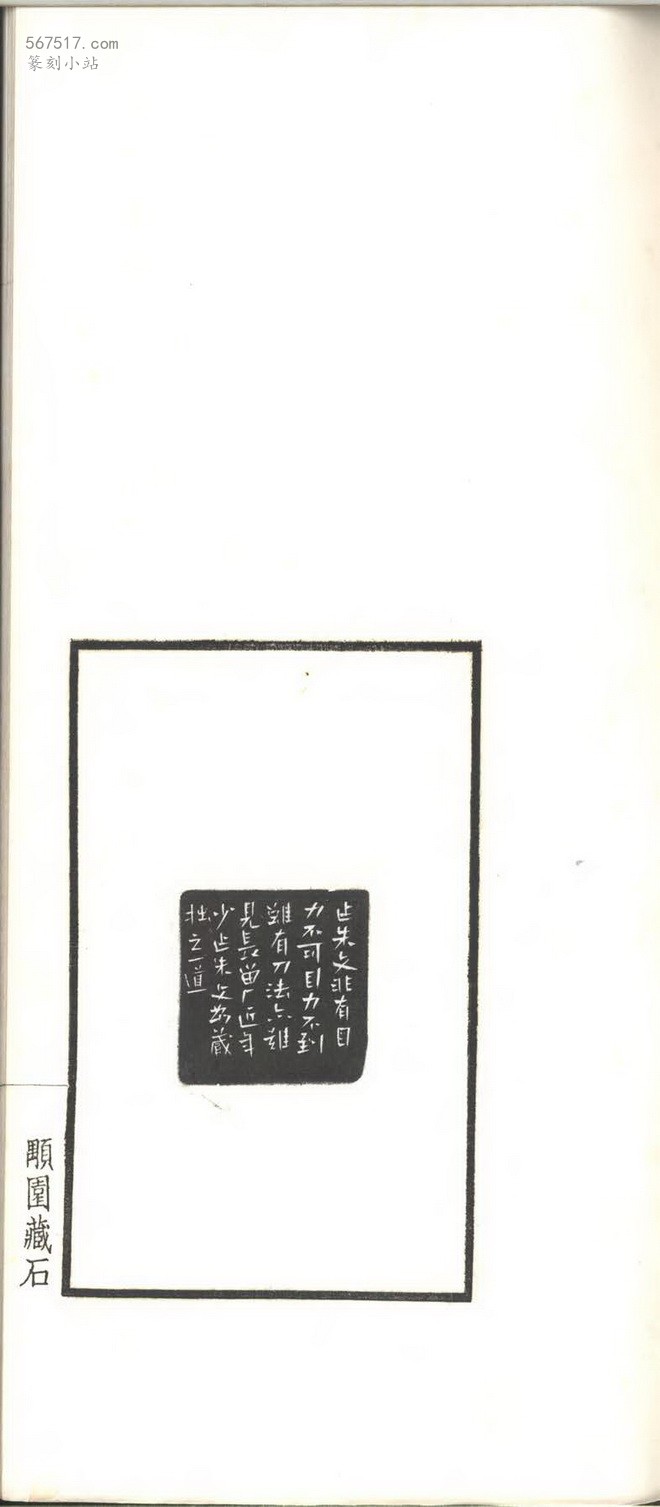 567517.com
篆刻小站
作朱文非有目
力不可目力不到
雖有刀法亦難
見長留厂近年
少作朱文亦藏
拙之一道
顒園藏石